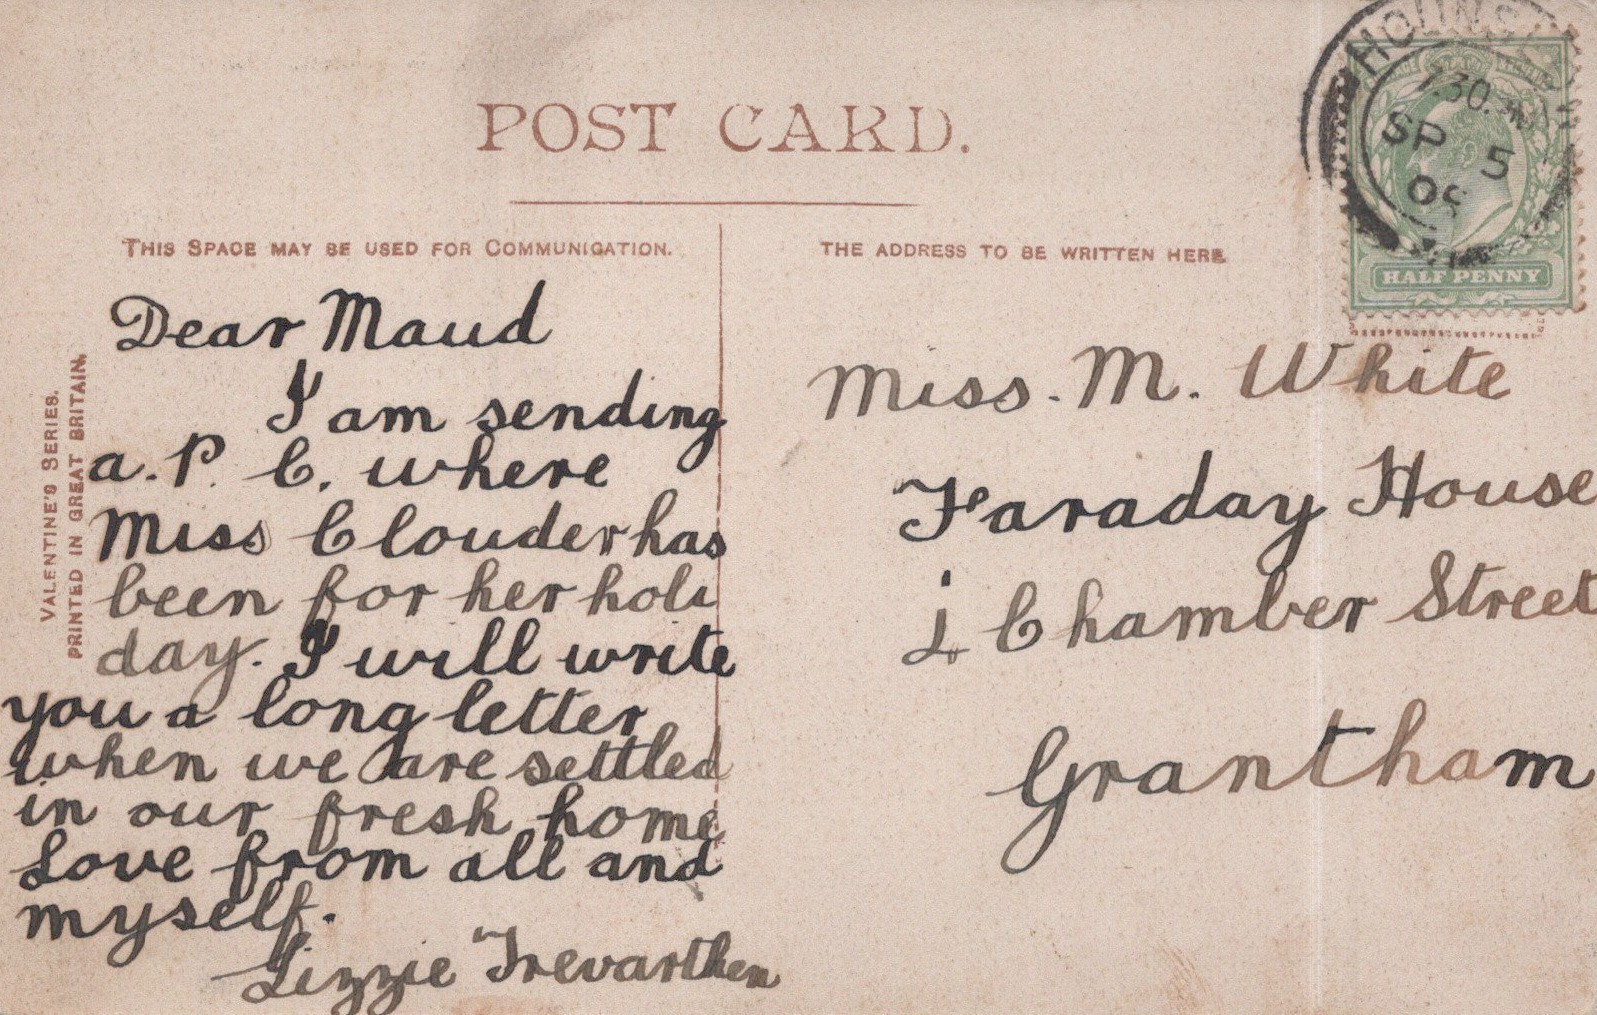 POST CARD.
THIS SPACE MAY BE USED FOR COMMUNICATION.
THE ADDRESS TO BE WRITTEN HERE
VALENTINE'S SERIES.
PRINTED IN GREAT BRITAIN.
Dear Maud
I am sending
a. P. C. where
Miss Clouder has
been for her holi
day. I will write
you a long letter
when we are settled
in our fresh home
Love from all and
myself.
Lizzie Trevarthen
Miss. M. White
Faraday House
Chamber Street
Grantham
7.30. AM
SP 5
HALF PENNY